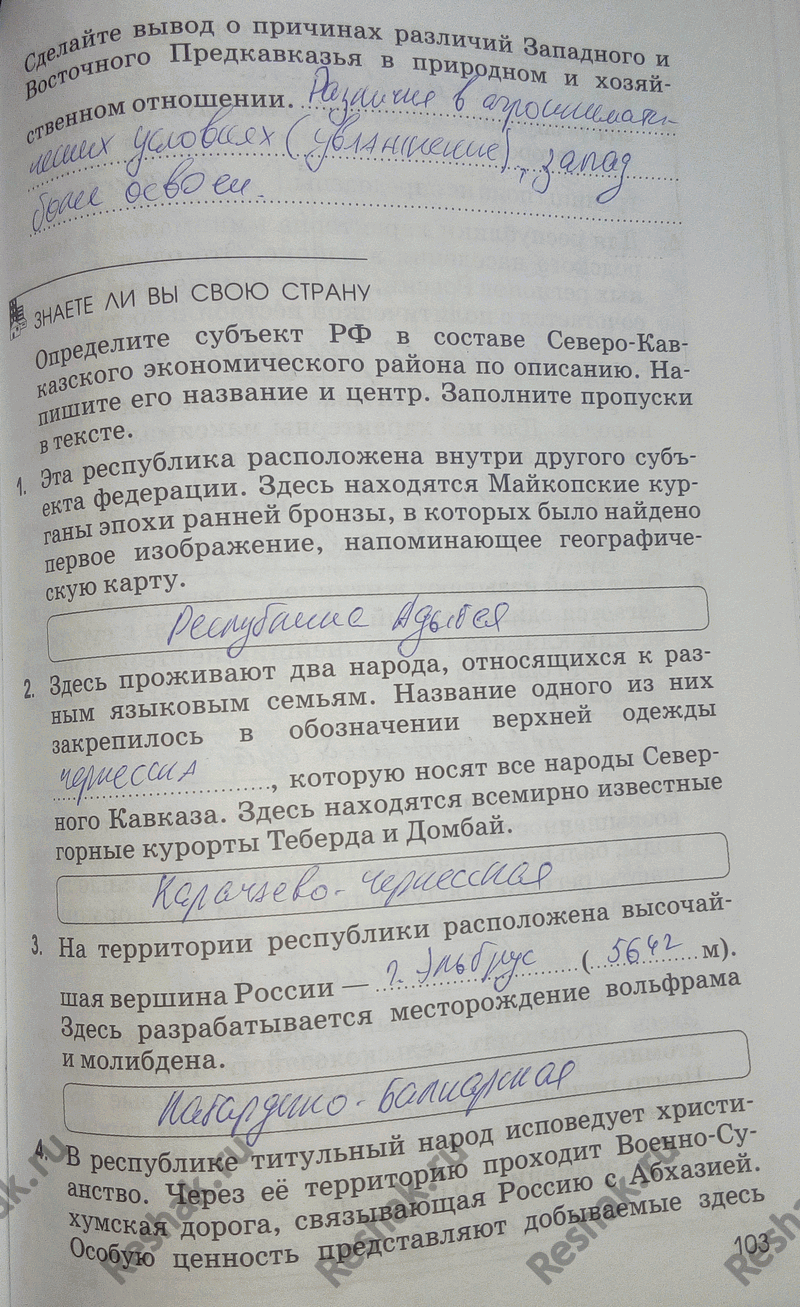 Сделайте вывод о причинах различий Западного и
Восточного Предкавказья в природном и хозяй-
ственном отношении. Различие в агроклимати-
ческих условиях (увлажнение), запад
более освоен.
ЗНАЕТЕ ЛИ ВЫ СВОЮ СТРАНУ
Определите субъект РФ в составе Северо-Кав-
казского экономического района по описанию. На-
пишите его название и центр. Заполните пропуски
в тексте.
1. Эта республика расположена внутри другого субъ-
екта федерации. Здесь находятся Майкопские кур-
ганы эпохи ранней бронзы, в которых было найдено
первое изображение, напоминающее географиче-
скую карту.
Республика Адыгея
2. Здесь проживают два народа, относящихся к раз-
ным языковым семьям. Название одного из них
закрепилось в обозначении верхней одежды
черкесска, которую носят все народы Север-
ного Кавказа. Здесь находятся всемирно известные
горные курорты Теберда и Домбай.
Карачаево-Черкесская
3. На территории республики расположена высочай-
шая вершина России — г. Эльбрус (5642 м).
Здесь разрабатывается месторождение вольфрама
и молибдена.
Кабардино-Балкарская
4. В республике титульный народ исповедует христи-
анство. Через её территорию проходит Военно-Су-
хумская дорога, связывающая Россию с Абхазией.
Особую ценность представляют добываемые здесь
103
Reshak.ru
Reshak.ru
Reshak.ru
Reshak.ru